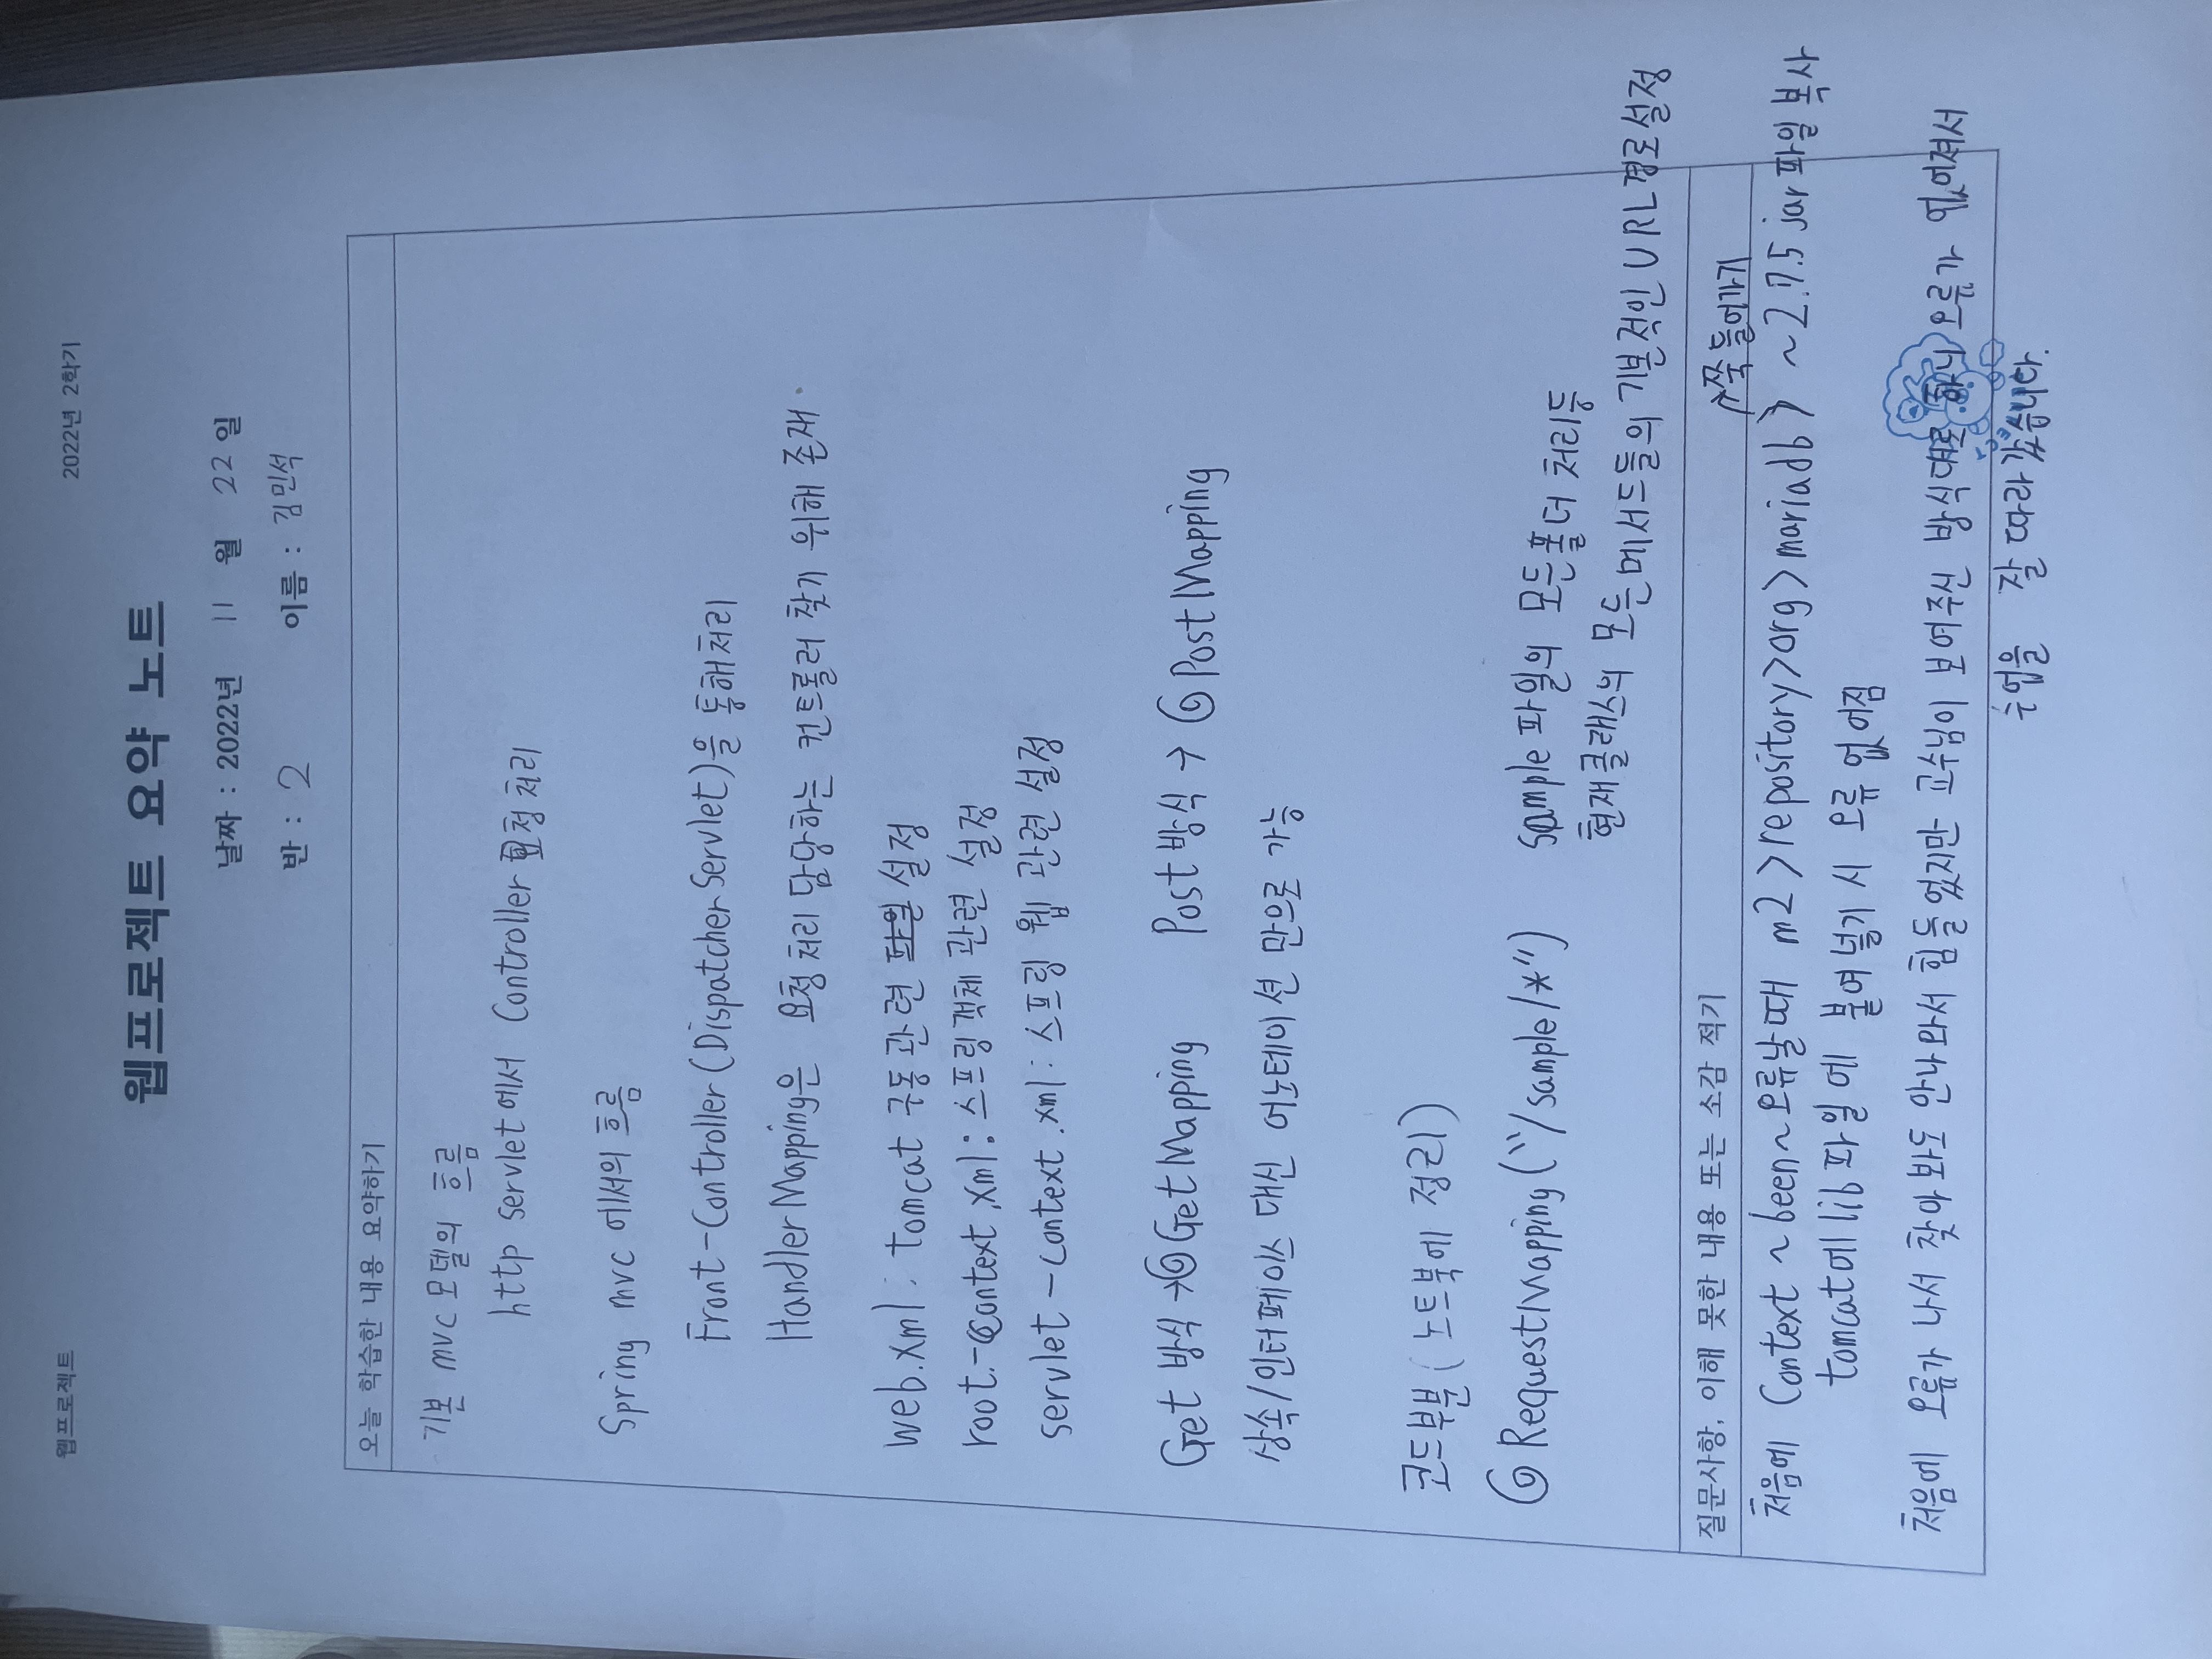 웹프로젝트
2022년 2학기
웹프로젝트 요약 노트
날짜 : 2022년 11 월 22 일
반 : 2 이름 : 김민석
오늘 학습한 내용 요약하기
기본 mvc 모델의 흐름
http servlet에서 Controller 요청처리
Spring mvc 에서의 흐름
Front-Controller(Dispatcher Servlet)을 통해처리
HandlerMapping은 요청처리 담당하는 컨트롤러 찾기 위해 존재
web.xml : tomcat 구동관련 설정
root-context.xml : 스프링객체 관련 설정
servlet-context.xml : 스프링 웹 관련 설정
Get 방식 → @GetMapping Post방식 → @PostMapping
상속/인터페이스 대신 어노테이션 만으로 가능
코드부분 (노트북에 정리)
@RequestMapping("/sample/*") sample 파일의 모든폴더 처리등
현재클래스의 모든메서드들의 기본적인 URL경로설정
질문사항, 이해 못한 내용 또는 소감 적기
↗쭉 들어가기
처음에 Context ~been~오류날때 m2 >repository>org>mariadb> ~2.7.5 jar파일 복사
tomcat에 lib 파일에 붙여넣기 시 오류 없어짐
처음에 오류가 나서 찾아봐도 안나와서 힘들었지만 교수님이 보여주신 방식대로 하니 오류가 없어져서
수업을 잘 따라갔습니다.